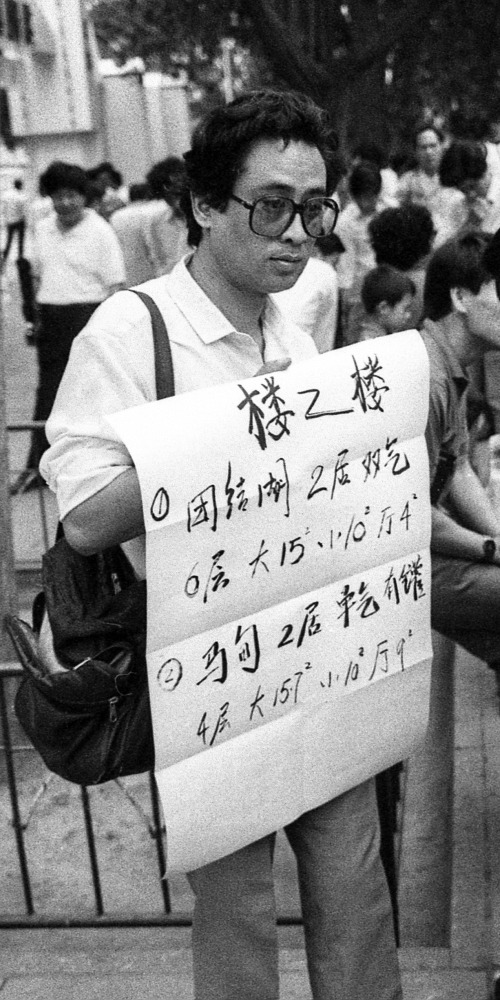 楼乙楼
① 团结湖 2居 双气
6层 大15² 小10² 厅4²
② 马甸 2居 单气 有罐
4层 大15.7² 小10² 厅9²